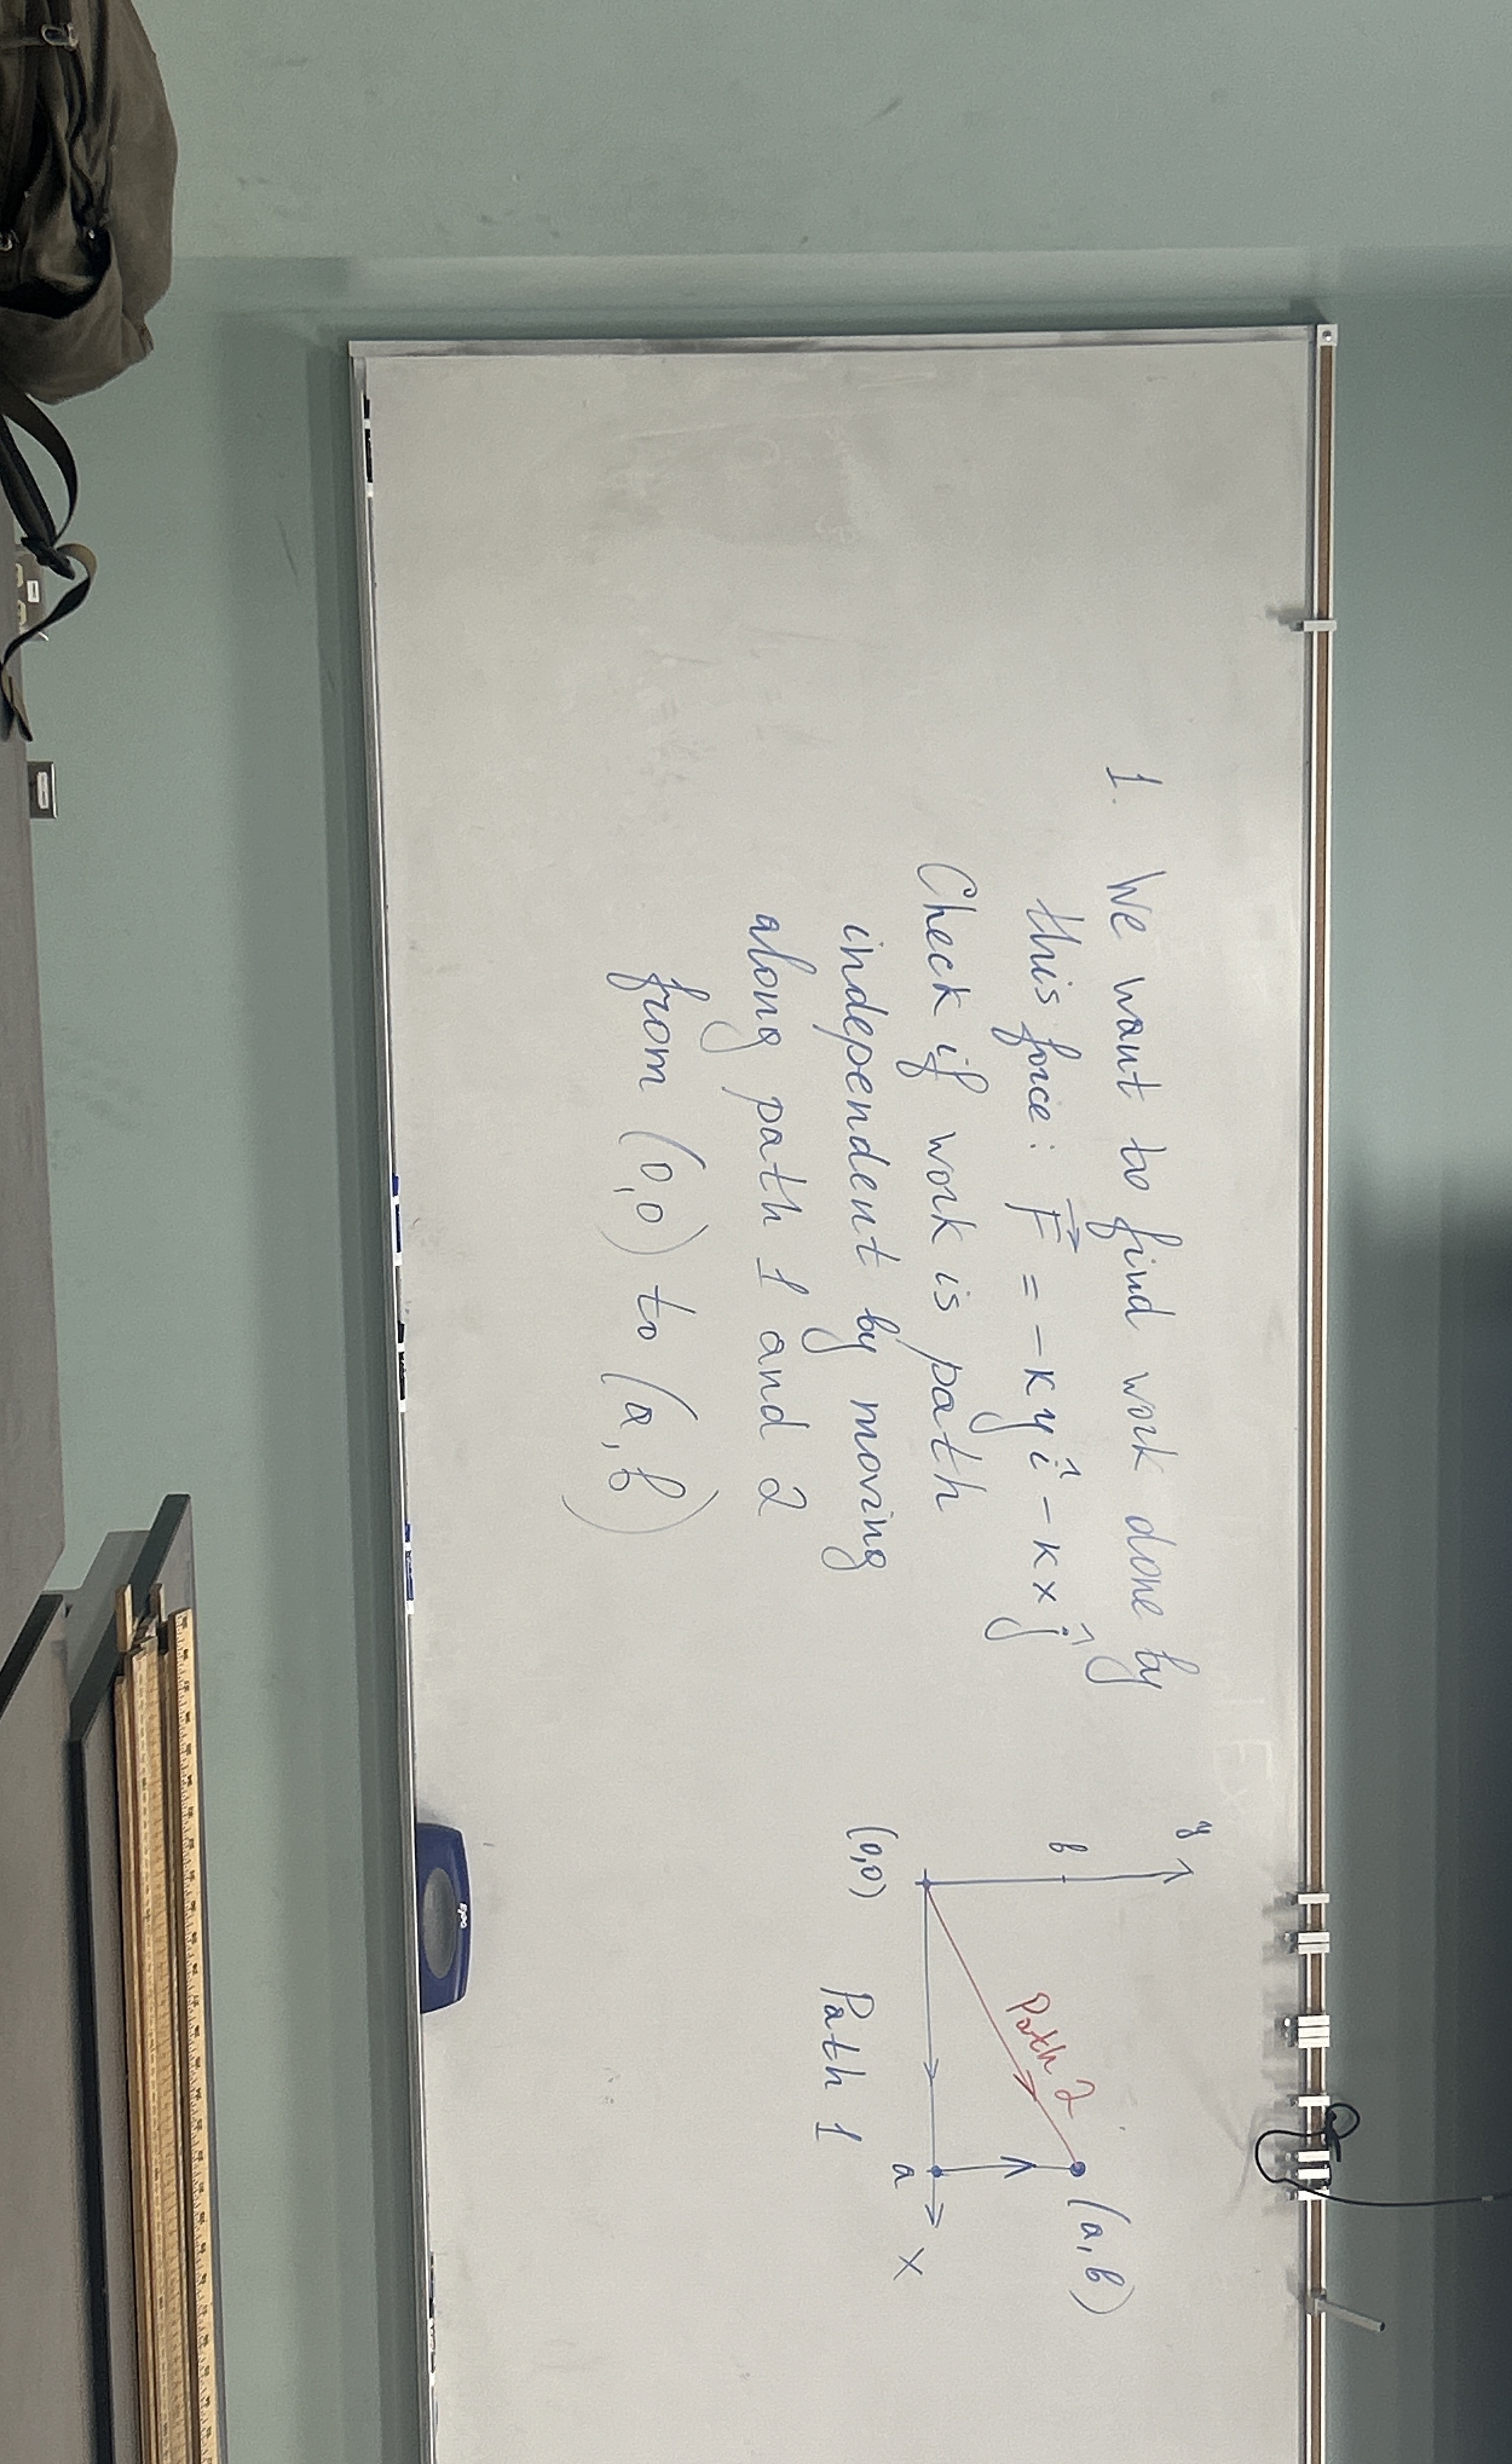 1. We want to find work done by
this force: F⃗ = -кyî - кxĵ
Check if work is path
independent by moving
along path 1 and 2
from (0,0) to (a,b)
y
b
Path 2
(a,b)
(0,0)
a
x
Path 1
expo